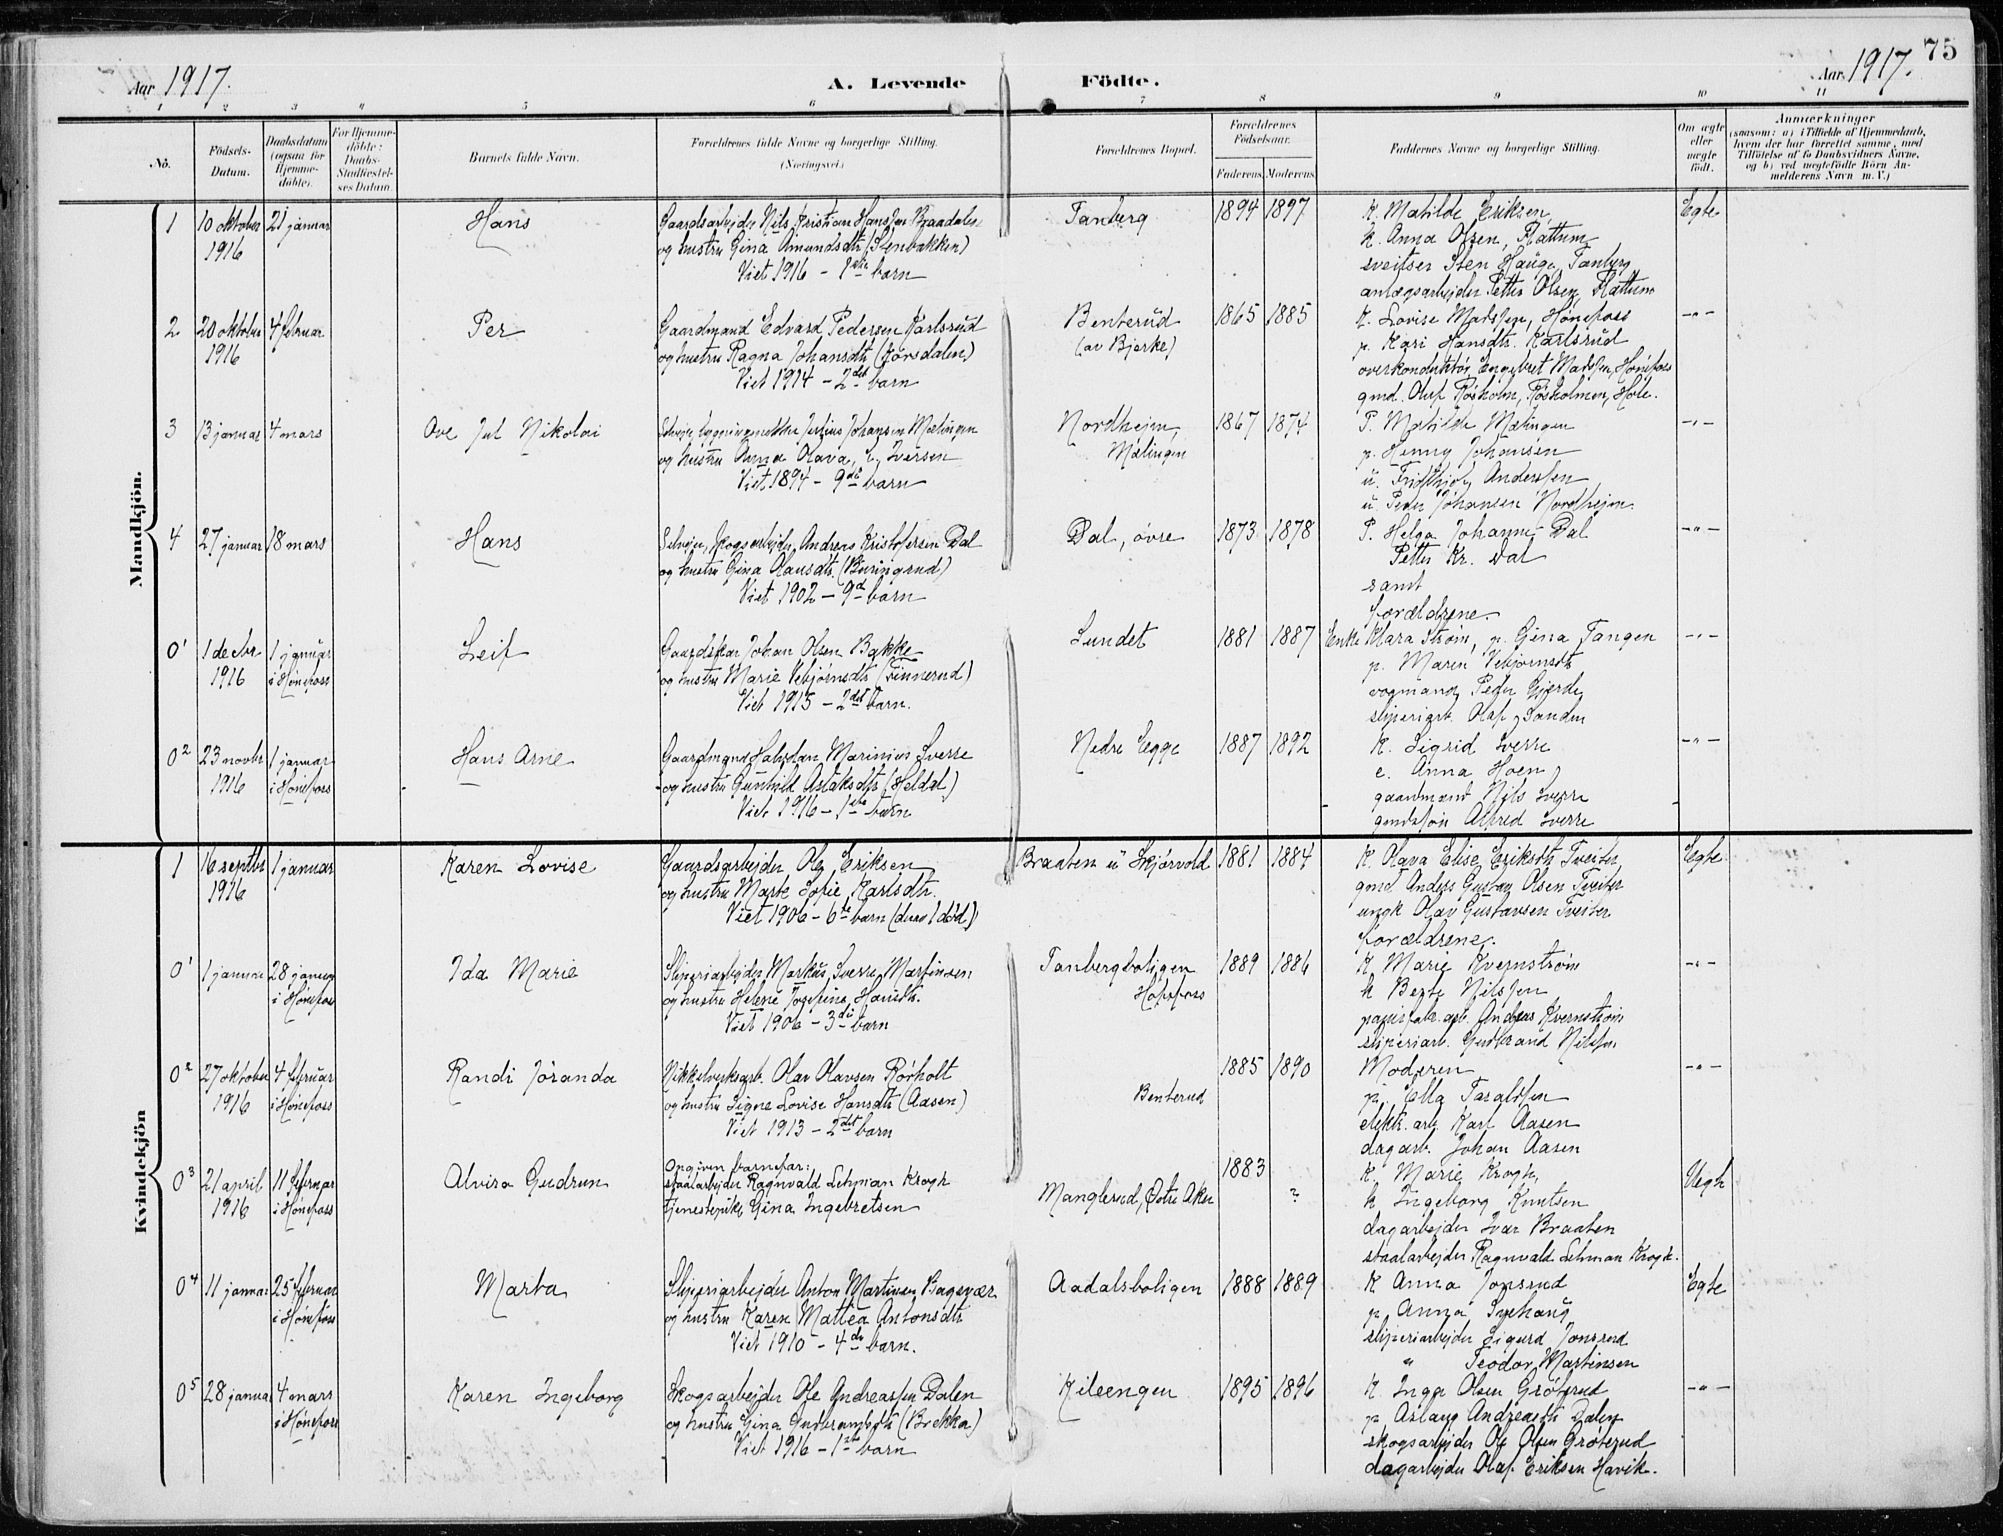 75
Aar 1917.
A. Levende Födte.
Aar 1917.
1 2 3 4 5 6 7 8 9 10 11
No.
Födsels-Datum.
Daabsdatum (ogsaa for Hjemme-döbte).
For Hjemme-döbte: Daabs-Stadfæstel-ses Datum.
Barnets fulde Navn.
Forældrenes fulde Navne og borgerlige Stilling. (Næringsvei.)
Forældrenes Bopæl.
Forældrenes Födselsaar.
Faderens. Moderens.
Faddernes Navne og borgerlige Stilling.
Om ægte eller uægte födt.
Anmærkninger
(saasom: a) i Tilfælde af Hjemmedaab, hvem der har forrettet samme, med Tilföielse af to Daabsvidners Navne, og b) ved uægtefödte Börn An-melderens Navn m. V.)
Mandkjön.
1 10 oktober 1916 21 januar Hans
Gaardsarbejder Nils Kristian Hanssen Braadalen
og hustru Gina Amundsdtr. (Stenbakken)
Viet 1916 – 1ste barn
Tanberg 1894 1897
K. Matilde Eriksen,
k. Anna Olsen, Flattum
sveitser Sten Hauge, Tanberg
anlægsarbejder Petter Olsen, Flattum
Egte
2 20 oktober 1916 4 februar Per
Gaardmand Edvard Pedersen Karlsrud
og hustru Ragna Johansdtr. (Körsdalen)
Viet 1914 – 2det barn
Benterud
(av Bjerke) 1865 1885
K. Lovise Madssen, Hönefoss
p. Kari Hansdtr. Karlsrud
overkonduktör Engebret Madssen, Hönefoss
gmd. Oluf Rösholm, Rösholmen, Hole.
–„–
3 13 januar 4 mars Ove Jul Nikolai
Selvejer, bygningsnekker Julius Johansen Mælingen
og hustru Anna Olava, f. Iversen
Viet 1894 – 9de barn
Nordhejm,
Mælingen 1867 1874
P. Matilde Mælingen
p. Henny Johansen
u. Fridthjof Anderssen
u. Peder Johansen Nordhejm
–„–
4 27 januar 18 mars Hans
Selvejer, skogsarbejder Andreas Kristofersen Dal
og hustru Gina Olausdtr. (Buringrud)
Viet 1902 – 9de barn
Dal, övre 1873 1878
P. Helga Johanne Dal
Petter Kr. Dal
samt
forældrene.
–„–
0¹ 1 decbr 1916 1 januar i Hönefoss Leif
Gaardskar Johan Olsen Bakke
og hustru Marie Vebjörnsdtr. (Finnerud)
Viet 1915 – 2det barn.
Lundet 1881 1887
Enke Klara Ström, p. Gina Tangen
p. Maren Vebjörnsdtr
vogmand Peder Gjerde
sliperiarb. Olaf Sanden
–„–
0² 23 novbr 1916 1 januar i Hönefoss Hans Arne
Gaardmand Halvdan Marinius Sverre
og hustru Gunhild Aslaksdtr (Heldal)
Viet 1916 – 1ste barn
Nedre Egge 1887 1892
K. Sigrid Sverre
e. Anna Hoen
gaardmand Nils Sverre
gmdssön Alfred Sverre
–„–
Kvindekjön
1 16 septbr 1916 1 januar Karen Lovise
Gaardsarbejder Ole Eriksen
og hustru Marte Sofie Karlsdtr.
Viet 1906 – 6te barn (derav 1 död)
Braaten u Skjörvold 1881 1884
K. Olava Elise Eriksdtr Tveiter
gmd Anders Gustav Olsen Tveiter
ungk Olav Gustavsen Tveiter
forældrene.
Egte
0¹ 1 januar 28 januar i Hönefoss Ida Marie
Sliperiarbejder Markus Sverre Martinsen
og hustru Helene Josefine Hansdtr.
Viet 1906 – 3die barn
Tanbergboligen
Hofsfoss 1889 1886
K Marie Kvernström
k Berte Nilssen
papirfabr. arb. Andreas Kvernström
sliperiarb. Gudbrand Nilssen
–„–
0² 27 oktober 1916 4 februar i Hönefoss Randi Jöranda
Nikkelverksarb. Olav Olavsen Rörholt
og hustru Signe Lovise Hansdtr (Aasen)
Viet 1913 – 2det barn
Benterud 1885 1890
Moderen
p. Ella Taraldsen
elektr. arb. Karl Aasen
dagarb. Johan Aasen
–„–
0³ 21 april 1916 11 februar i Hönefoss Alvira Gudrun
Opgiven barnefar:
staalarbejder Ragnvald Lehman Krogh
tjenestepike Gina Ingebretsen
Manglerud, Östre Aker 1883 ?
K. Marie Krogh,
k Ingeborg Knutsen
dagarbejder Ivar Braaten
staalarbejder Ragnvald Lehman Krogh.
Uegte
0⁴ 11 januar 25 februar i Hönefoss Marta
Sliperiarbejder Anton Martinsen Bagsvær
og hustru Karen Mattea Antonsdtr
Viet 1910 – 4de barn.
Aadalsboligen 1888 1889
K Anna Jonsrud
p. Anna
sliperiarbejder Sigurd Jonsrud
„ Teodor Martinsen
Egte
0⁵ 28 januar 4 mars i Hönefoss Karen Ingeborg
Skogsarbejder Ole Andreassen Dalen
og hustru Gina Gulbrandsdtr (Brekka)
Viet 1916 – 1ste barn
Kileengen 1895 1896
K. Inga Olsen Gröterud
p. Aslaug Andreasdtr Dalen
skogsarbejder Ole Olsen Gröterud
dagarbejder Olaf Eriksen Havik.
–„–